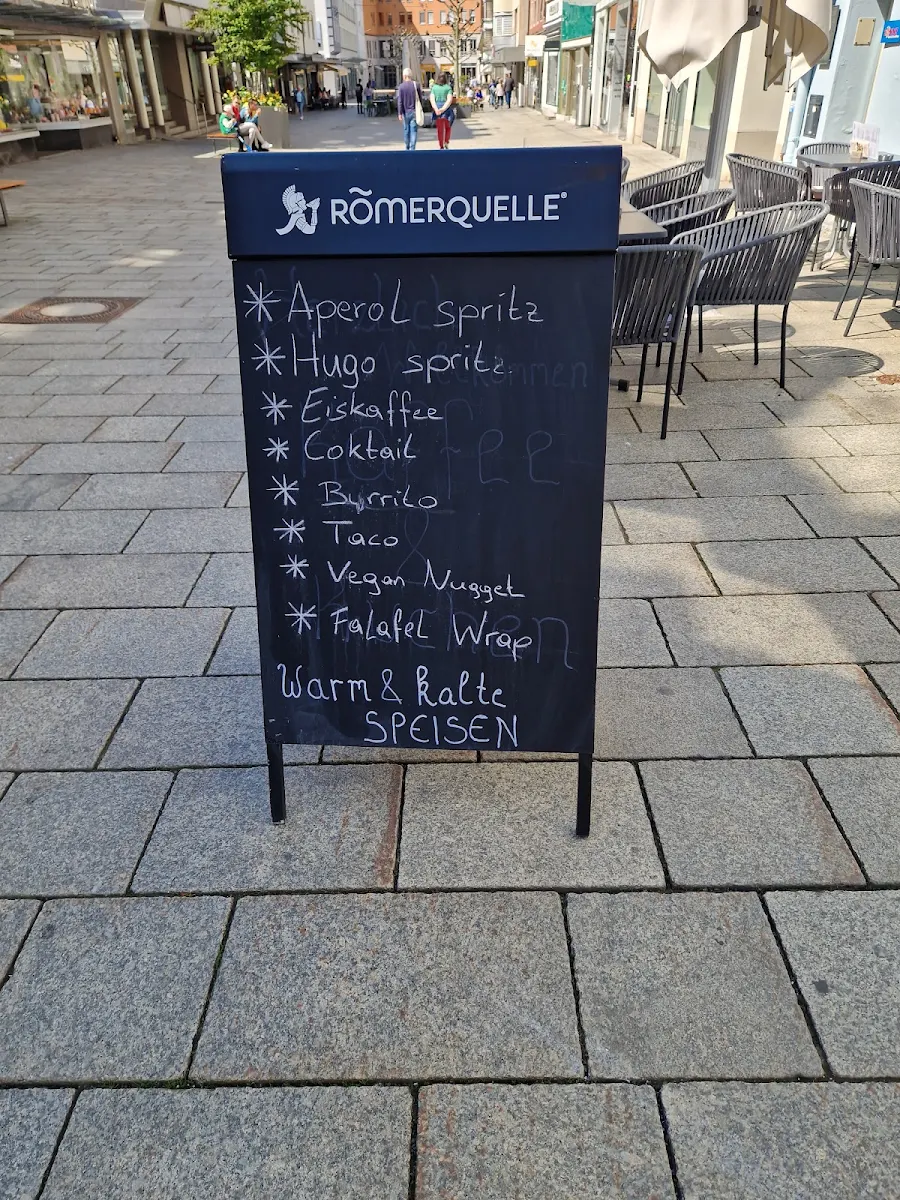 RÖMERQUELLE®
* Aperol spritz
* Hugo spritz
* Eiskaffee
* Coktail
* Burrito
* Taco
* Vegan Nugget
* Falafel Wrap
Warm & kalte
SPEISEN